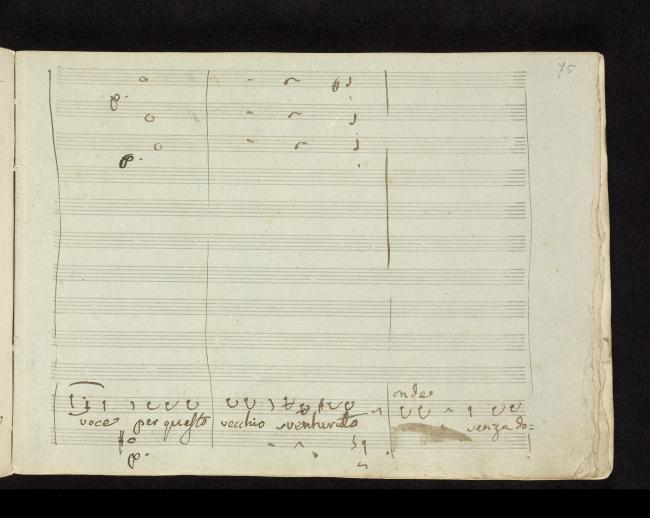 75
p.
p.
onde
voce per questo vecchio sventurato senza do=
p.